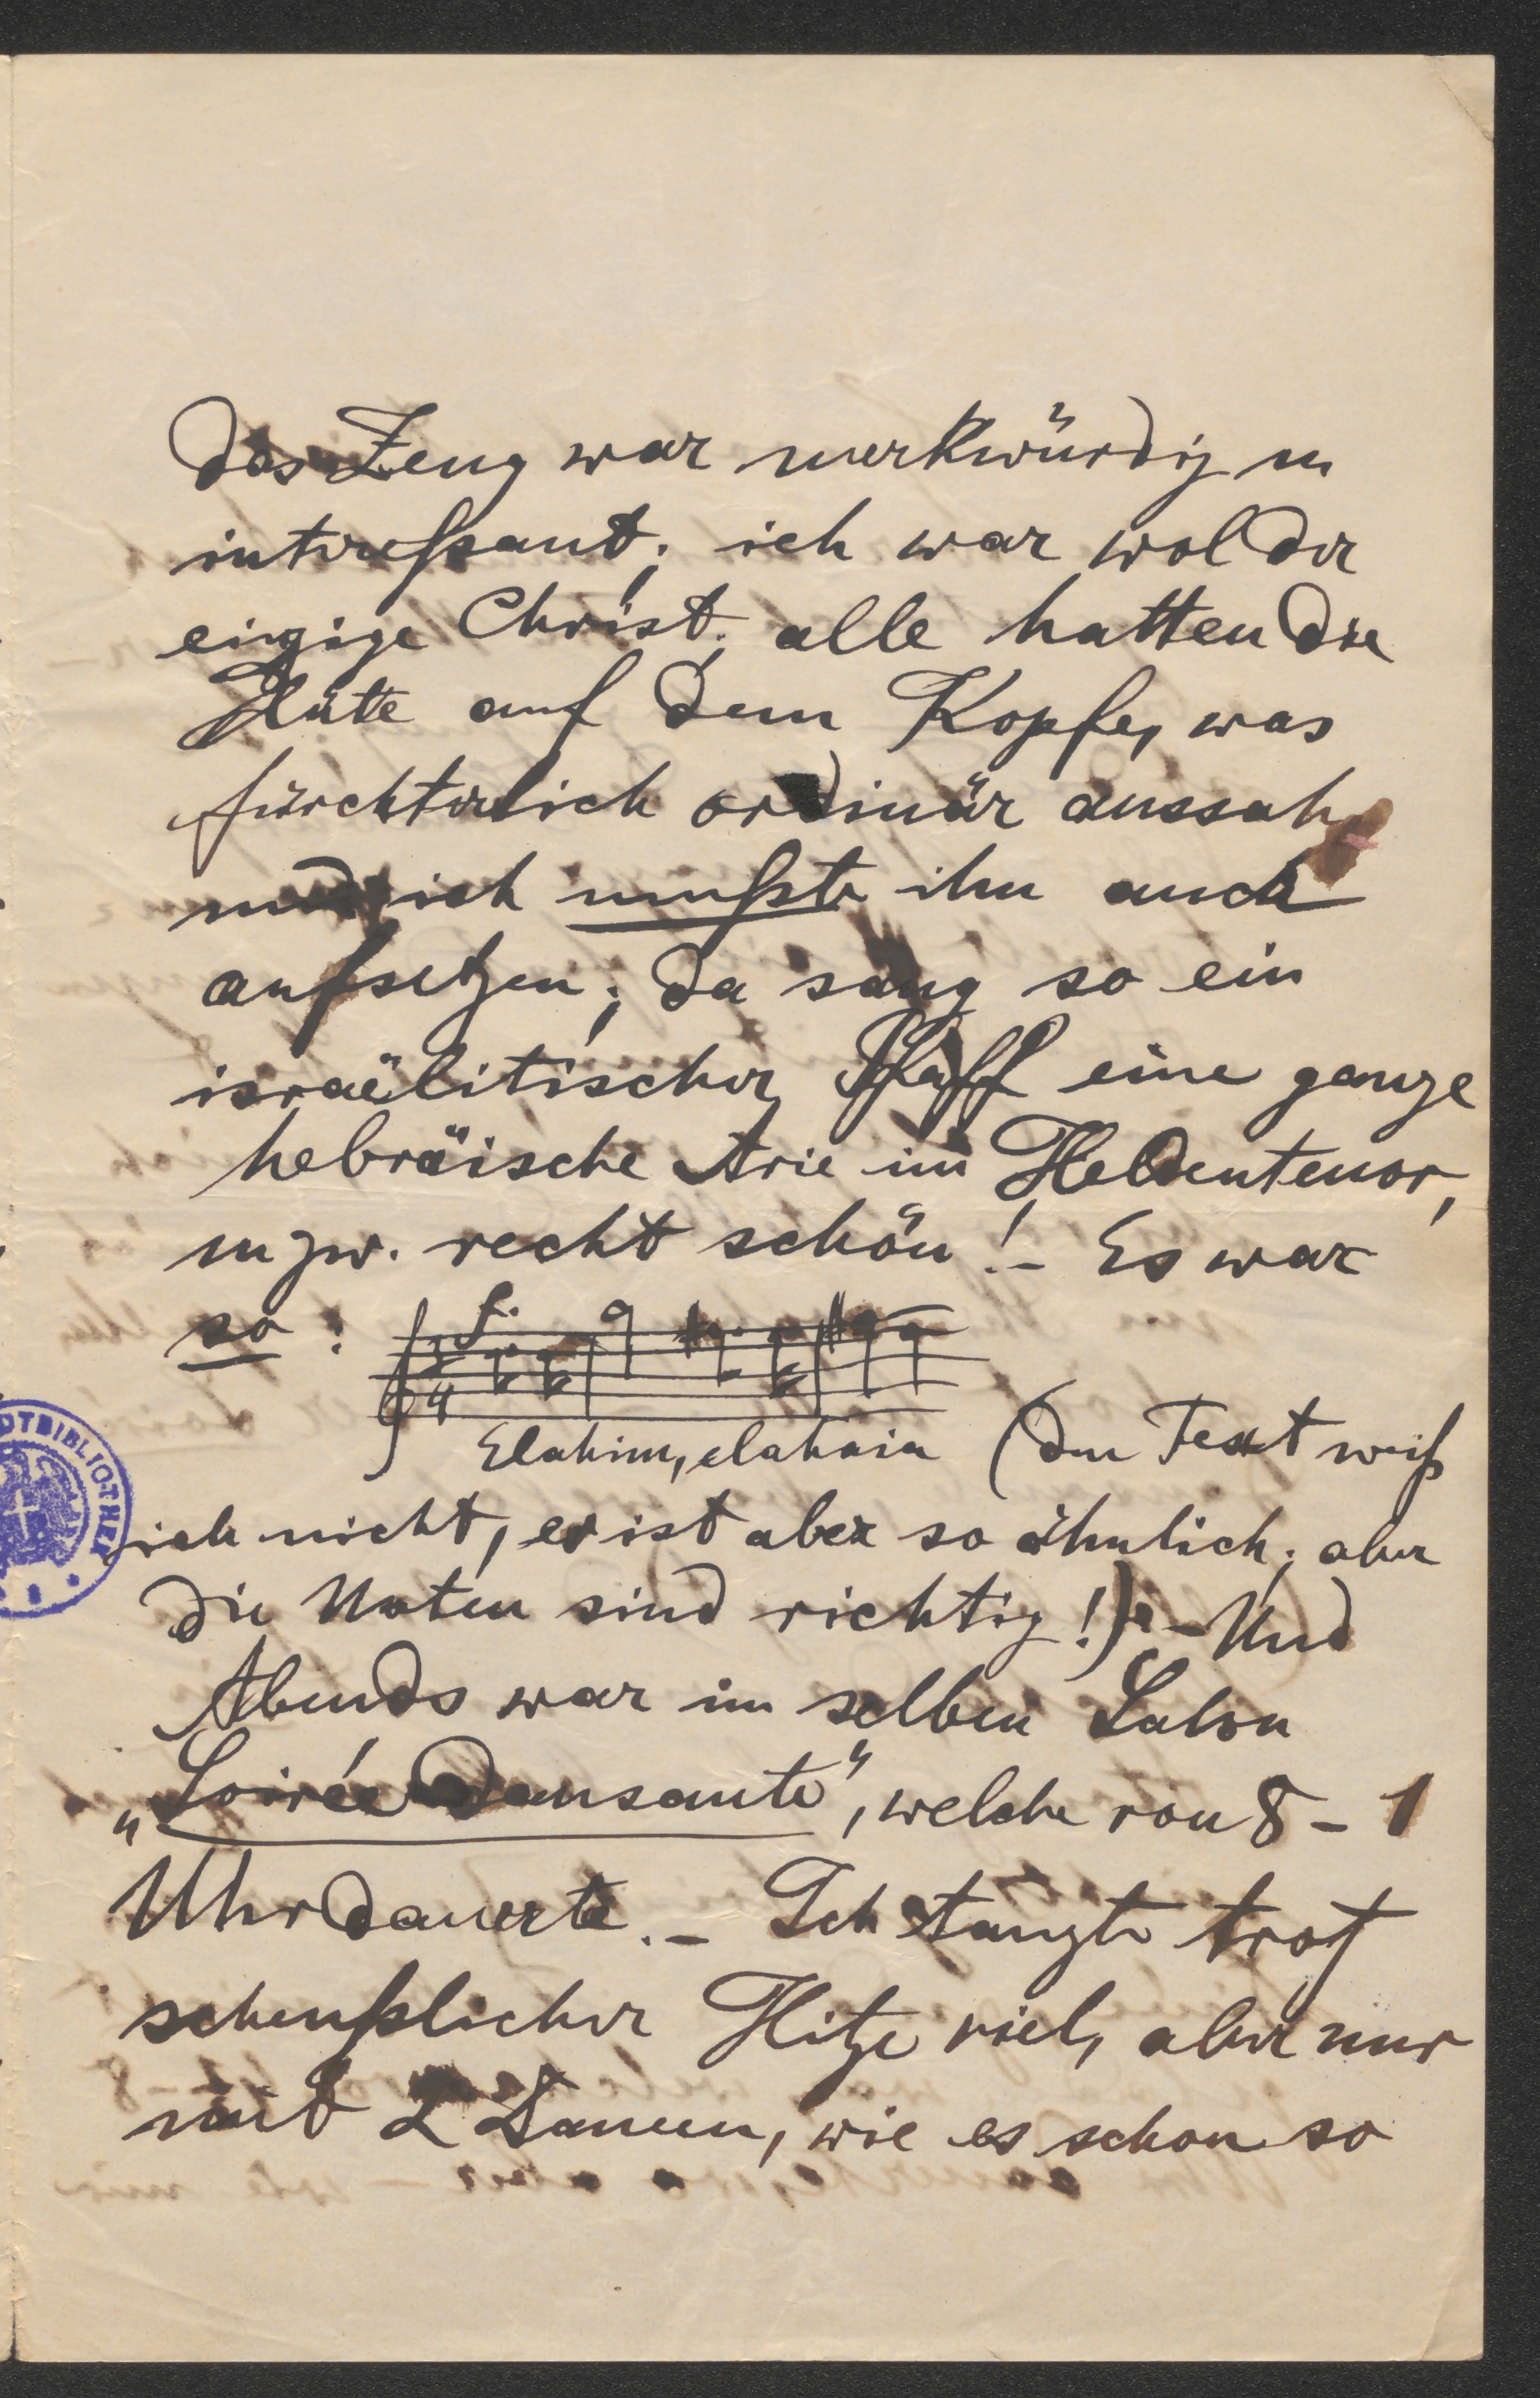 das Zeug war merkwürdig u
interessant; ich war wol der
einzige Christ; alle hatten die
Hüte auf dem Kopfe, was
fürchterlich ordinär aussah,
und ich mußte ihn auch
aufsetzen; da sang so ein
israëlitischer Pfaff eine ganze
hebräische Arie im Heldentenor,
u zw. recht schön! – Es war
so :
Elahim, elahaia (den Text weiß
ich nicht, er ist aber so ähnlich; aber
die Noten sind richtig!) – Und
Abends war im selben Salon
„Soirée Dansante“, welche von 8 – 1
Uhr dauerte. – Ich tanzte trotz
scheußlicher Hitze viel, aber nur
mit 2 Damen, wie es schon so